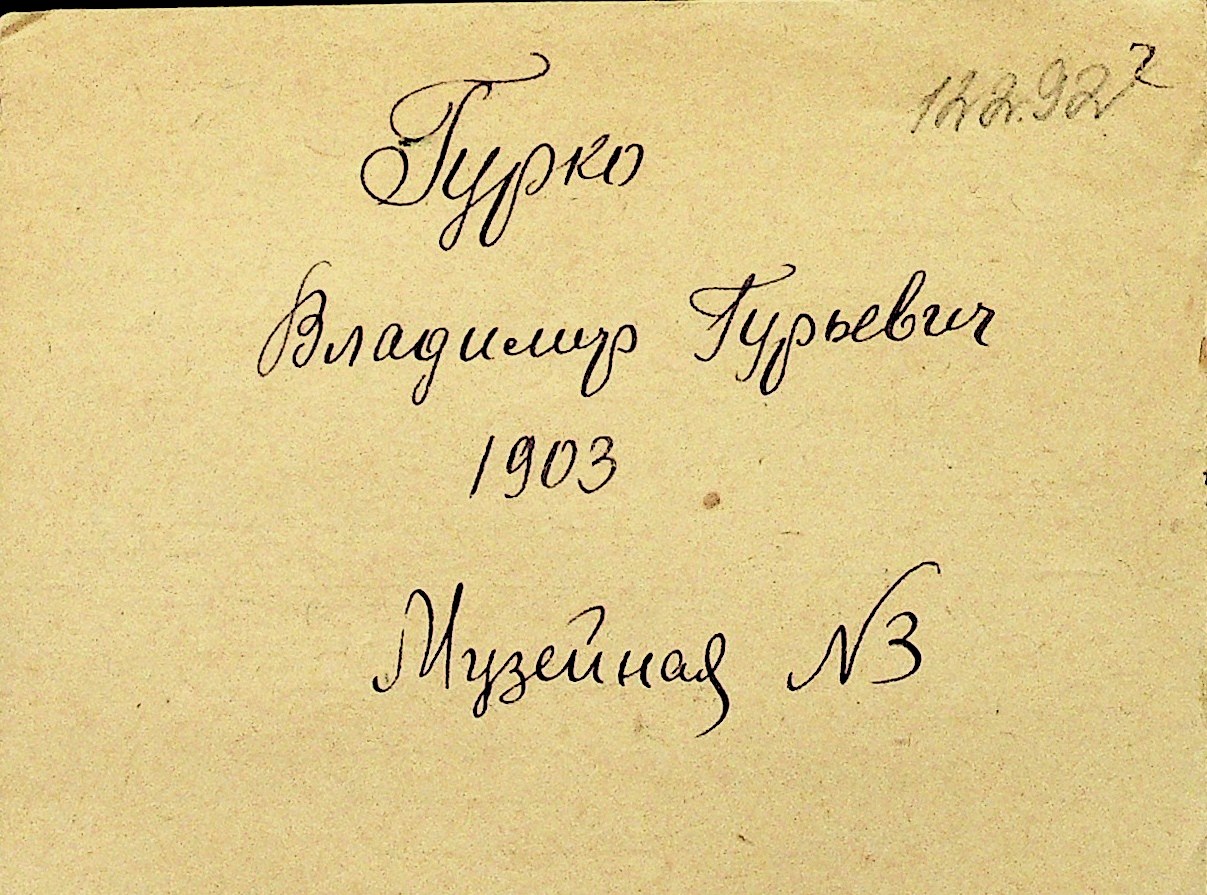 122.92²
Гурко
Владимир Гурьевич
1903
Музейная N3